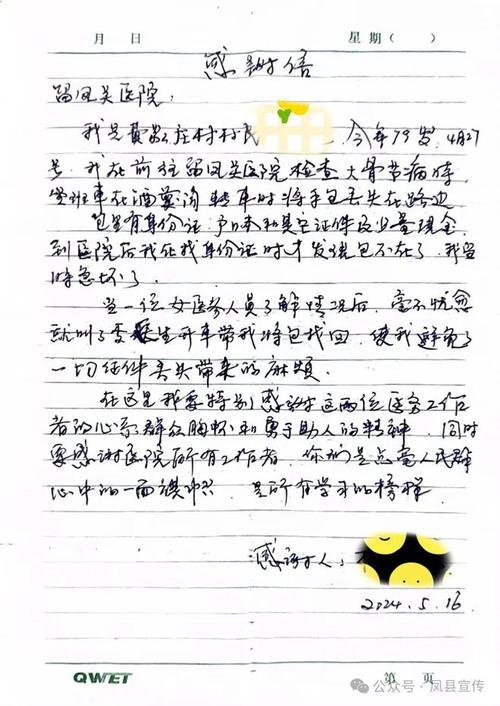 月 日 星期( )
感谢信
留凤关医院:
我是费家庄村村民 今年79岁,4月27
号,我在前往留凤关医院检查大骨节病时
坐班车在酒奠沟转车时将手包丢失在路边
包里有身份证、户口本和其它证件及少量现金,
到医院后我在找身份证时才发现包不在了,我当
时急坏了。
当一位女医务人员了解情况后,毫不忧愈
就叫了李医生开车带我将包找回,使我避免了
一切证件丢失带来的麻烦。
在这里我要特别感谢这两位医务工作
者的心系群众胸怀和勇于助人的精神,同时
要感谢医院所有工作者,你们是 人民群
心中的一面旗帜,是所有学习的榜样
感谢人:
2024.5.16
QWET 第 页
公众号·凤县宣传